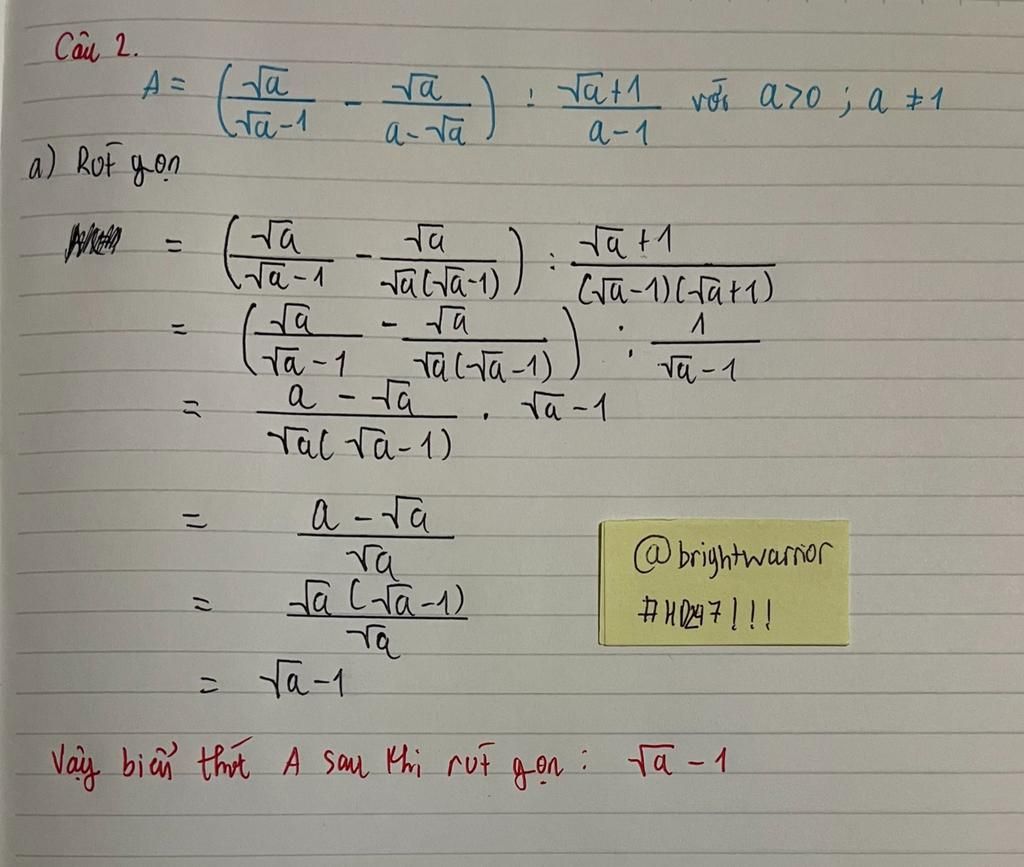 Câu 2.
A = (√a/(√a-1) - √a/(a-√a)) : (√a+1)/(a-1) với a>0 ; a ≠ 1
a) Rút gọn
= (√a/(√a-1) - √a/(√a(√a-1))) : (√a+1)/((√a-1)(√a+1))
= (√a/(√a-1) - √a/(√a(√a-1))) : 1/(√a-1)
= (a-√a)/(√a(√a-1)) . √a-1
= (a-√a)/√a
= √a(√a-1)/√a
= √a-1
@brightwarrior
#HD247!!!
Vậy biển thức A sau khi rút gọn : √a - 1